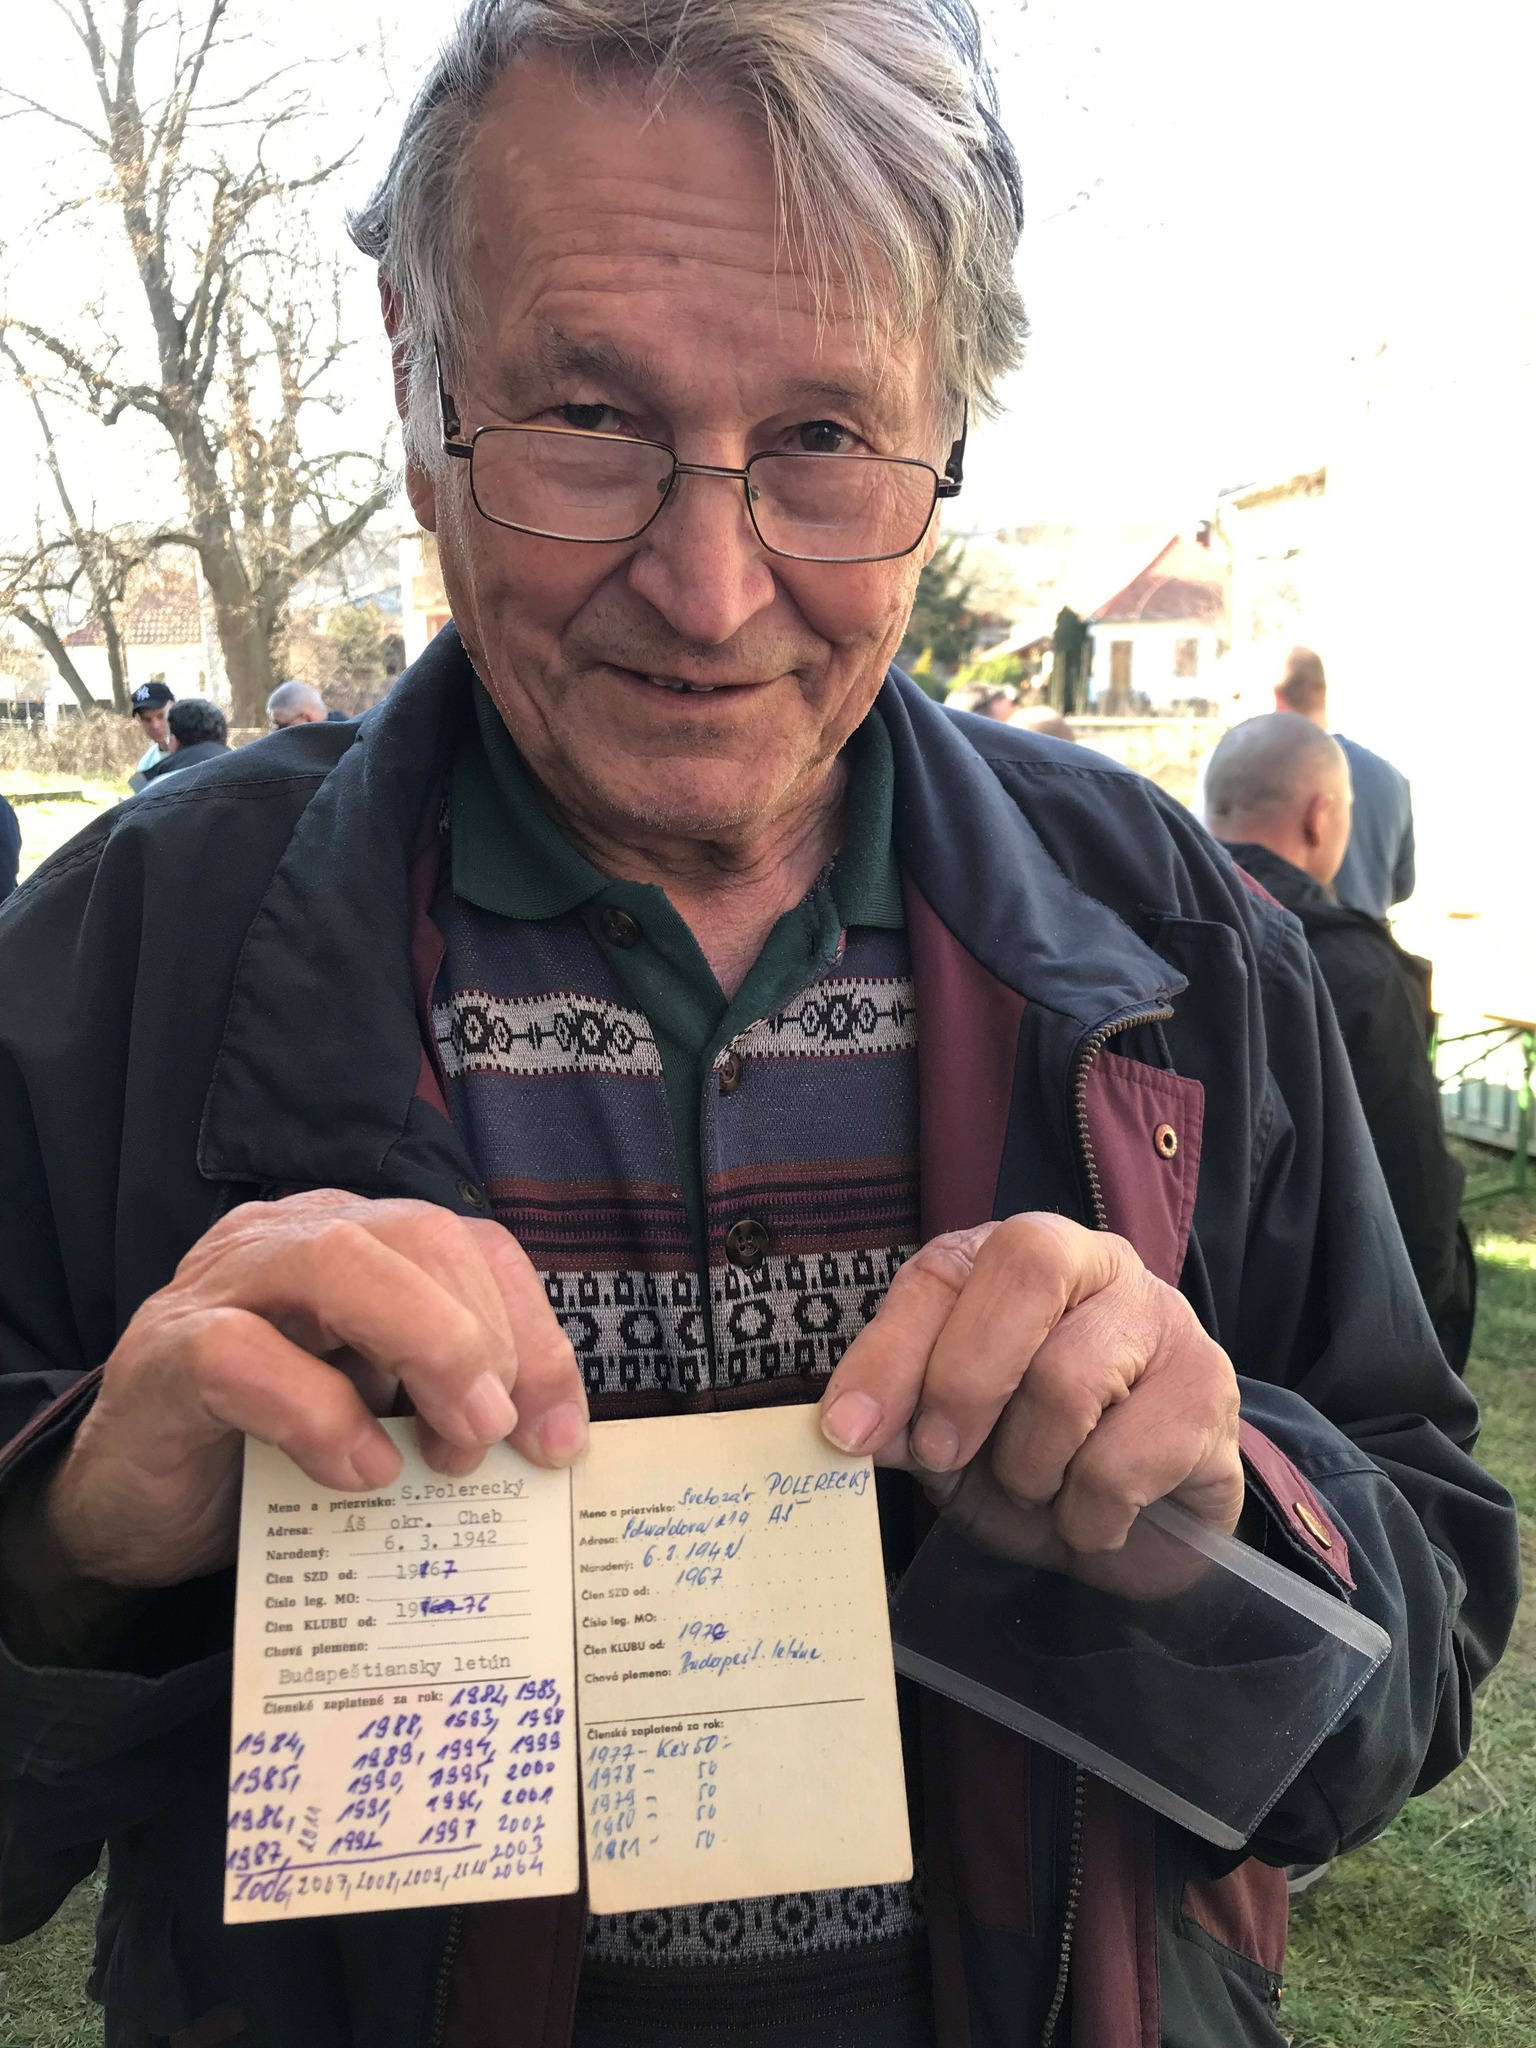 Meno a priezvisko: S.Polerecký
Adresa: Áš okr. Cheb
Narodený: 6. 3. 1942
Člen SZD od: 1967
Číslo leg. MO:
Člen KLUBU od: 1976
Chová plemeno:
Budapeštiansky letún
Členské zaplatené za rok: 1982, 1983,
1984, 1988, 1993, 1998
1985, 1989, 1994, 1999
1986, 1990, 1995, 2000
1987, 2011 1991, 1996, 2001
1992 1997 2002
2003
2006, 2007, 2008, 2009, 2010 2004
Meno a priezvisko: Svetozár POLERECKÝ
Adresa: 219 AŠ
Narodený: 6. 3. 1942
Člen SZD od: 1967
Číslo leg. MO:
Člen KLUBU od: 1976
Chová plemeno: Budapešt. letúne
Členské zaplatené za rok:
1977 - Kčs 50.-
1978 - 50
1979 - 50
1980 - 50
1981 - 50